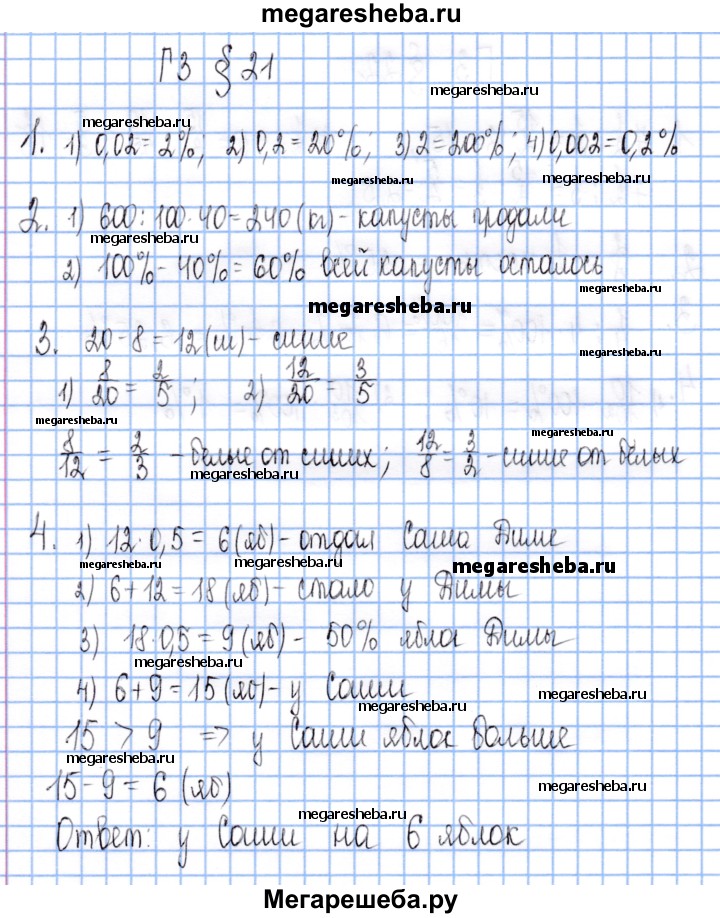 megaresheba.ru
ГЗ § 21
megaresheba.ru
megaresheba.ru
1. 1) 0,02 = 2%; 2) 0,2 = 20%; 3) 2 = 200%; 4) 0,002 = 0,2%
megaresheba.ru
megaresheba.ru
2. 1) 600 : 100 · 40 = 240 (кг) - капусты продали
megaresheba.ru
2) 100% - 40% = 60% всей капусты осталось
megaresheba.ru
megaresheba.ru
3. 20 - 8 = 12 (ш) - синие
1) 8/20 = 2/5; 2) 12/20 = 3/5
megaresheba.ru
megaresheba.ru
8/12 = 2/3 - белые от синих; 12/8 = 3/2 - синие от белых
megaresheba.ru
4. 1) 12 · 0,5 = 6 (яб) - отдал Саша Диме
megaresheba.ru
megaresheba.ru
megaresheba.ru
2) 6 + 12 = 18 (яб) - стало у Димы
3) 18 · 0,5 = 9 (яб) - 50% яблок Димы
megaresheba.ru
4) 6 + 9 = 15 (яб) - у Саши
megaresheba.ru
megaresheba.ru
15 > 9 => у Саши яблок больше
megaresheba.ru
megaresheba.ru
15 - 9 = 6 (яб)
megaresheba.ru
megaresheba.ru
Ответ: у Саши на 6 яблок
Мегарешеба.ру